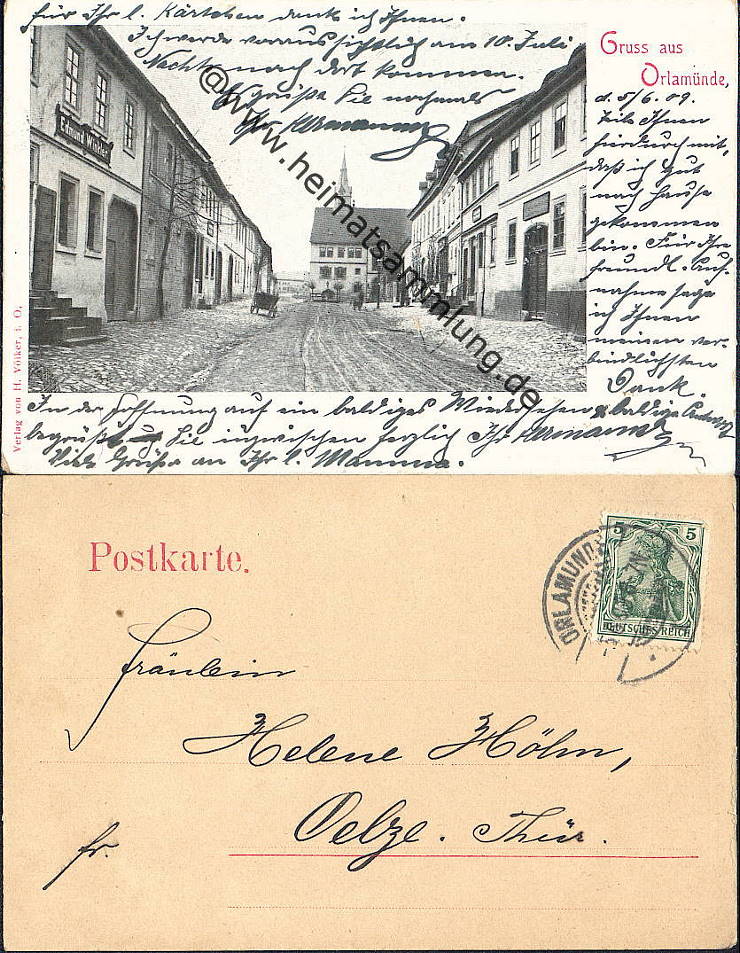 für Ihr l. Kärtchen danke ich Ihnen.
Ich werde voraussichtlich am 10. Juli
Nachts nach dort kommen.
Es grüßt Sie nochmals
Ihr Hermann
Gruss aus
Orlamünde,
d. 5/6. 09.
Teile Ihnen
hierdurch mit,
daß ich gut
nach Hause
gekommen
bin. Für Ihre
freundl. Auf-
nahme sage
ich Ihnen
meinen ver-
bindlichsten
Dank.
Edmund Winkler
@www.heimatsammlung.de
Verlag von H. Völker, i. O.
In der Hoffnung auf ein baldiges Wiedersehen & baldige Antwort
begrüßt Sie inzwischen herzlich Ihr Hermann
Viele Grüße an Ihr l. Mamma.
Postkarte.
5 5
DEUTSCHES REICH
ORLAMÜNDE
Fräulein
Helene Höhn,
Oelze. Thür.
fr.